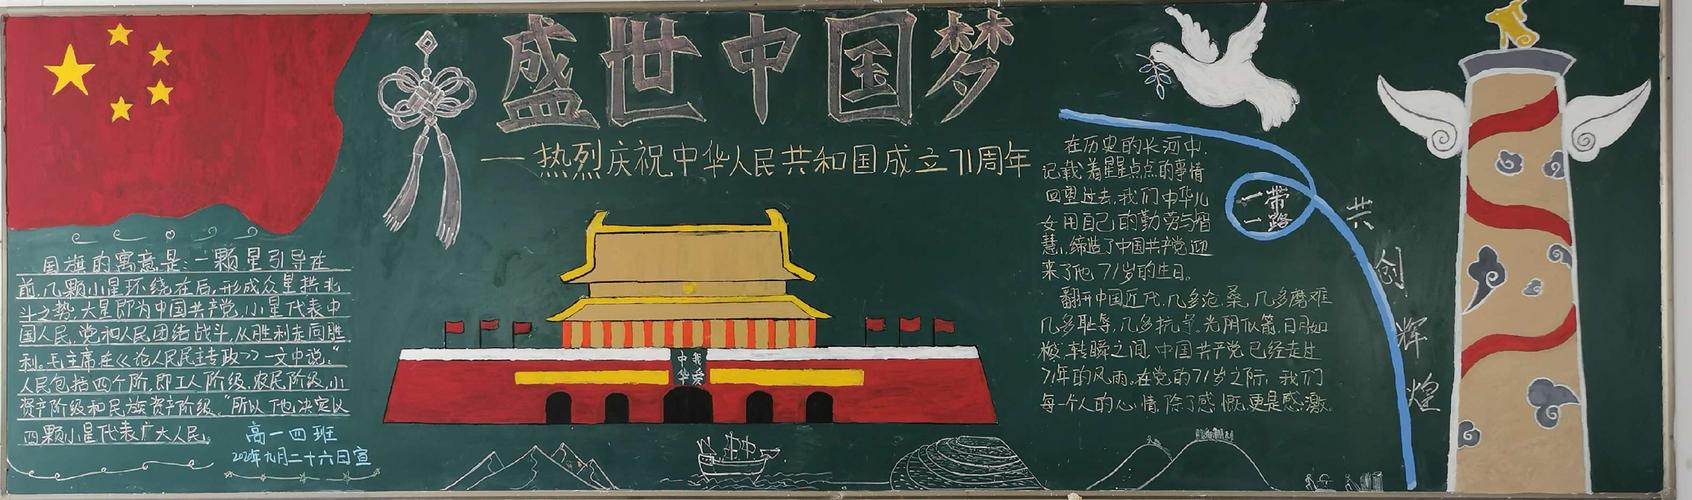 盛世中国梦
—热烈庆祝中华人民共和国成立71周年
国旗的寓意是：一颗星引导在
前，几颗小星环绕在后，形成众星拱北
斗之势。大星即为中国共产党，小星代表中
国人民，党和人民团结战斗，从胜利走向胜
利。毛主席在《论人民民主专政》一文中说，“
人民包括四个阶，即工人阶级、农民阶级、小
资产阶级和民族资产阶级。”所以他决定以
四颗小星代表广大人民。
高一四班
2020年九月二十六日宣
我爱
中华
在历史的长河中，
记载着星星点点的事情
回望过去，我们中华儿
女用自己的勤劳与智
慧，缔造了中国共产党，迎
来了他71岁的生日。
翻开中国近代，几多沧桑，几多磨难
几多耻辱，几多抗争。光阴似箭，日月如
梭，转瞬之间，中国共产党已经走过
71年的风雨。在党的71岁之际，我们
每一个人的心情，除了感慨，更是感激。
一带
一路
共创辉煌